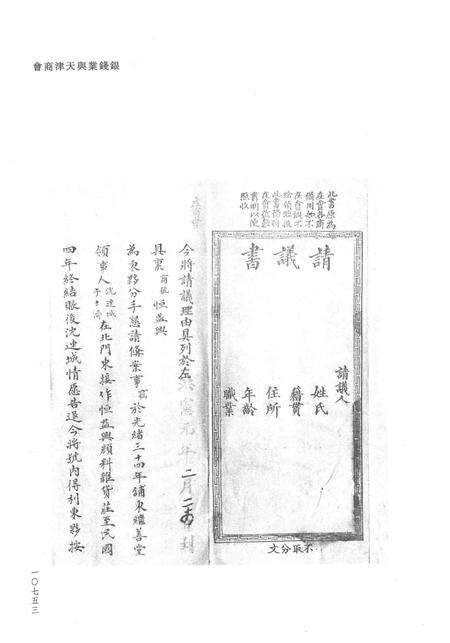 銀錢業與天津商會
此書原為
在會各商
備用如不
在會概不
給領他項
此書倘到
在會檢驗
書明以便
驗收
請議書
請議人
姓氏
籍貫
住所
年齡
職業
不取分文
元年二月
到
今將請議理由具列於左
具稟商號恒益興
為東夥分手懇請備案事竊於光緒三十四年鋪東繼善堂
領事人沈連城
在北門東接作恒益興顏料雜貨莊至民國
四年終結賬後沈連城情愿告退今將號內得利東夥按
一〇七五三